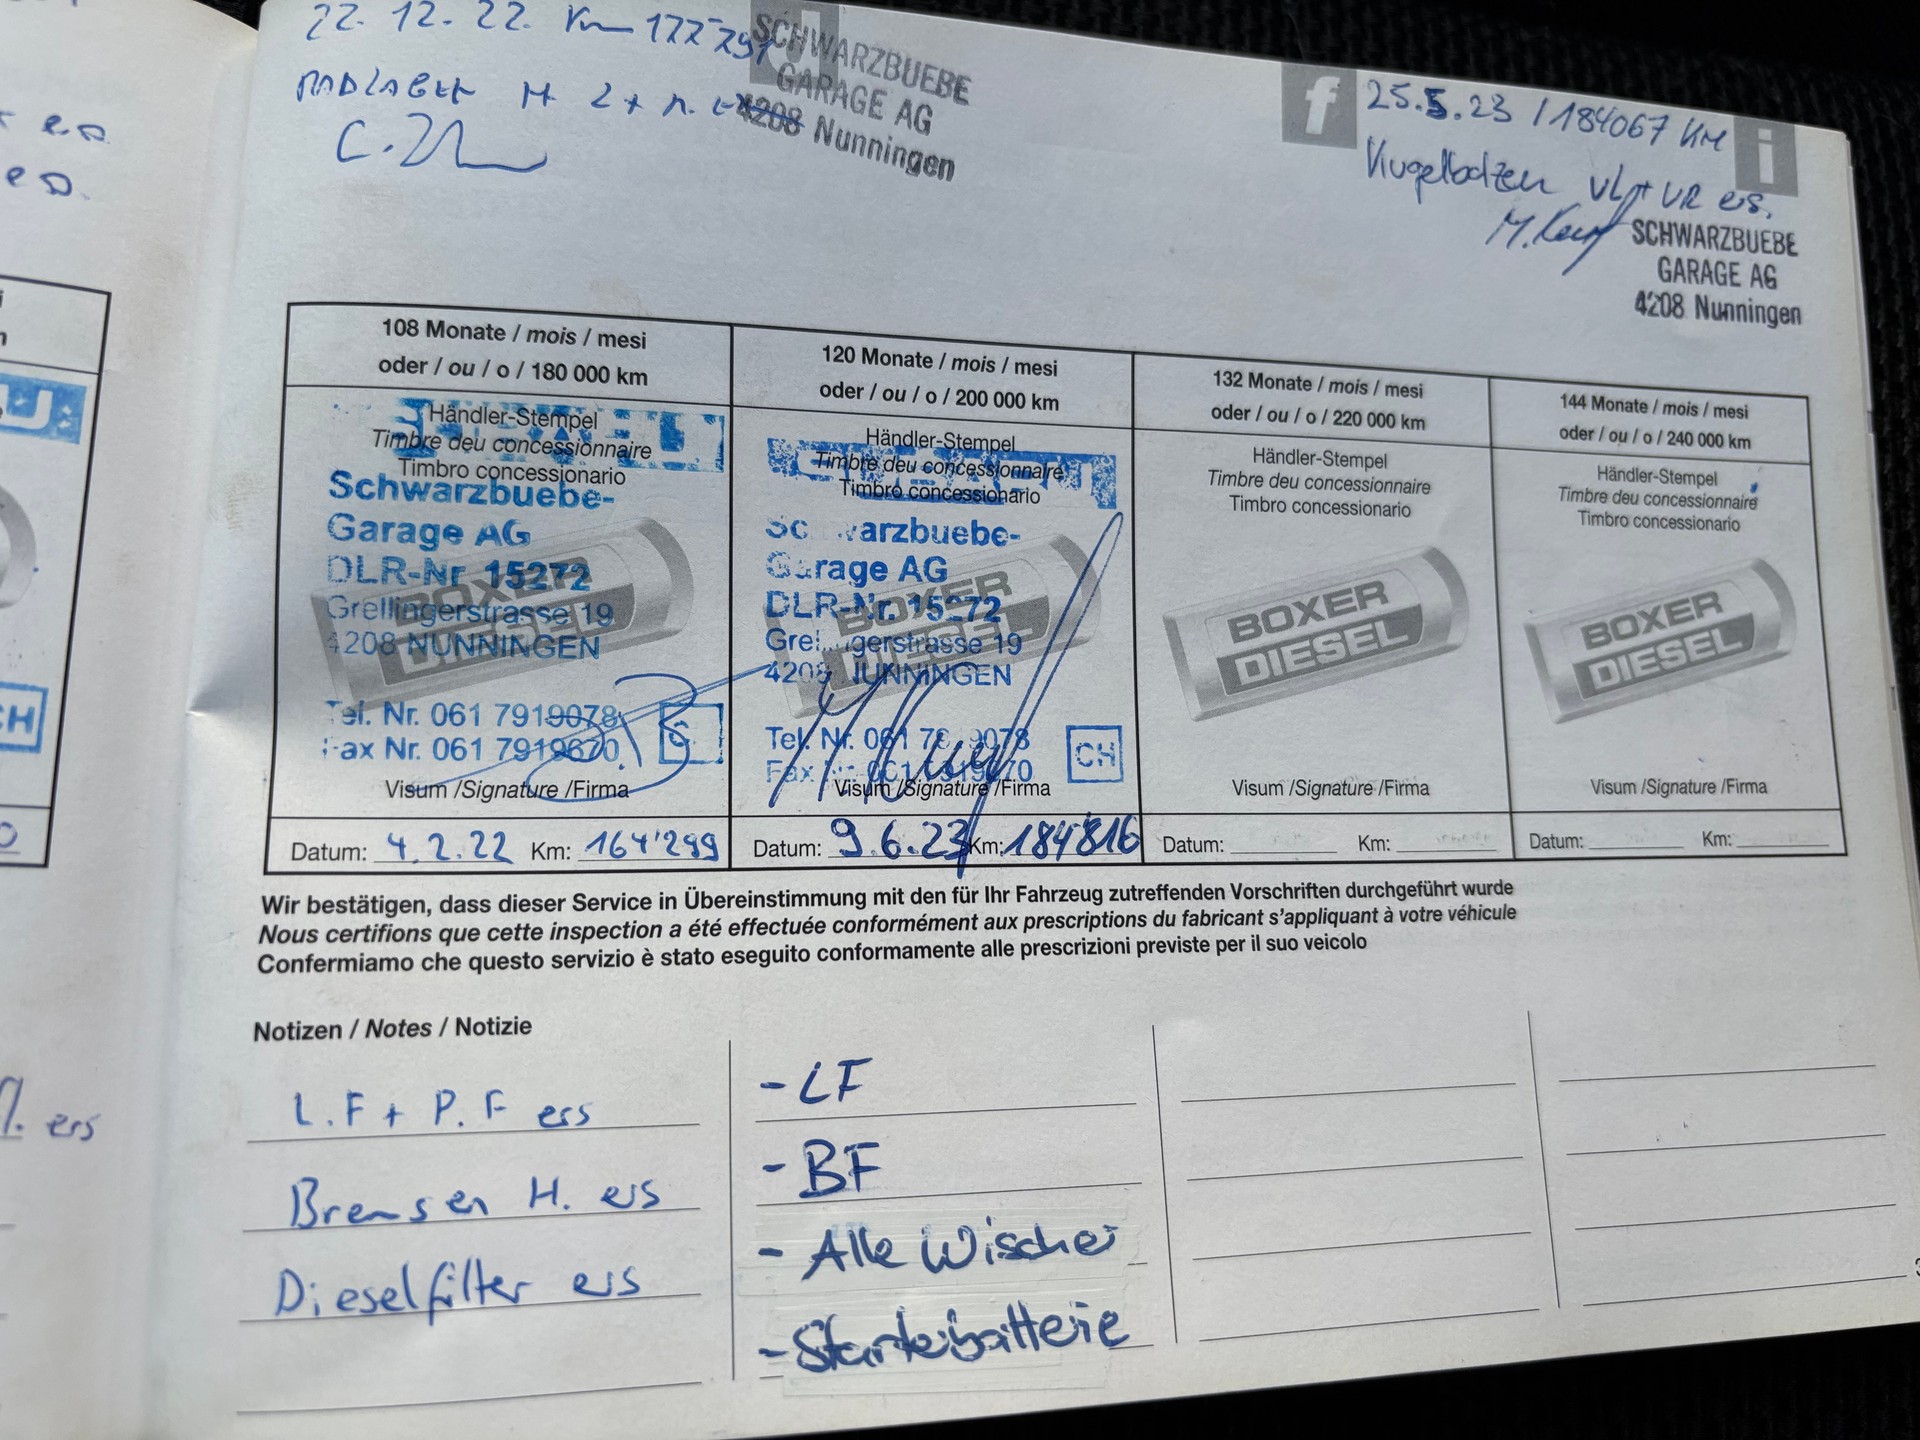 22.12.22. Km 177'791
RADLAGER H
SCHWARZBUEBE
GARAGE AG
4208 Nunningen
f
i
25.5.23 / 184067 KM
Kugelbolzen VL + VR ers.
SCHWARZBUEBE
GARAGE AG
4208 Nunningen
108 Monate / mois / mesi
oder / ou / o / 180 000 km
Händler-Stempel
Timbre deu concessionnaire
Timbro concessionario
Schwarzbuebe-
Garage AG
DLR-Nr 15272
Grellingerstrasse 19
4208 NUNNINGEN
BOXER
DIESEL
Tel. Nr. 061 7919078
Fax Nr. 061 7919670
Visum /Signature /Firma
Datum: 4.2.22 Km: 164'299
120 Monate / mois / mesi
oder / ou / o / 200 000 km
Händler-Stempel
Timbre deu concessionnaire
Timbro concessionario
Schwarzbuebe-
Garage AG
DLR-Nr. 15272
Grellingerstrasse 19
4208 NUNNINGEN
BOXER
DIESEL
Tel. Nr. 061 7919078
Fax Nr. 061 7919670
CH
Visum /Signature /Firma
Datum: 9.6.23 Km: 184'816
132 Monate / mois / mesi
oder / ou / o / 220 000 km
Händler-Stempel
Timbre deu concessionnaire
Timbro concessionario
BOXER
DIESEL
Visum /Signature /Firma
Datum: Km:
144 Monate / mois / mesi
oder / ou / o / 240 000 km
Händler-Stempel
Timbre deu concessionnaire
Timbro concessionario
BOXER
DIESEL
Visum /Signature /Firma
Datum: Km:
Wir bestätigen, dass dieser Service in Übereinstimmung mit den für Ihr Fahrzeug zutreffenden Vorschriften durchgeführt wurde
Nous certifions que cette inspection a été effectuée conformément aux prescriptions du fabricant s'appliquant à votre véhicule
Confermiamo che questo servizio è stato eseguito conformamente alle prescrizioni previste per il suo veicolo
Notizen / Notes / Notizie
L.F + P.F ers
Bremsen H. ers
Dieselfilter ers
- LF
- BF
- Alle Wischer
- Starterbatterie
ers